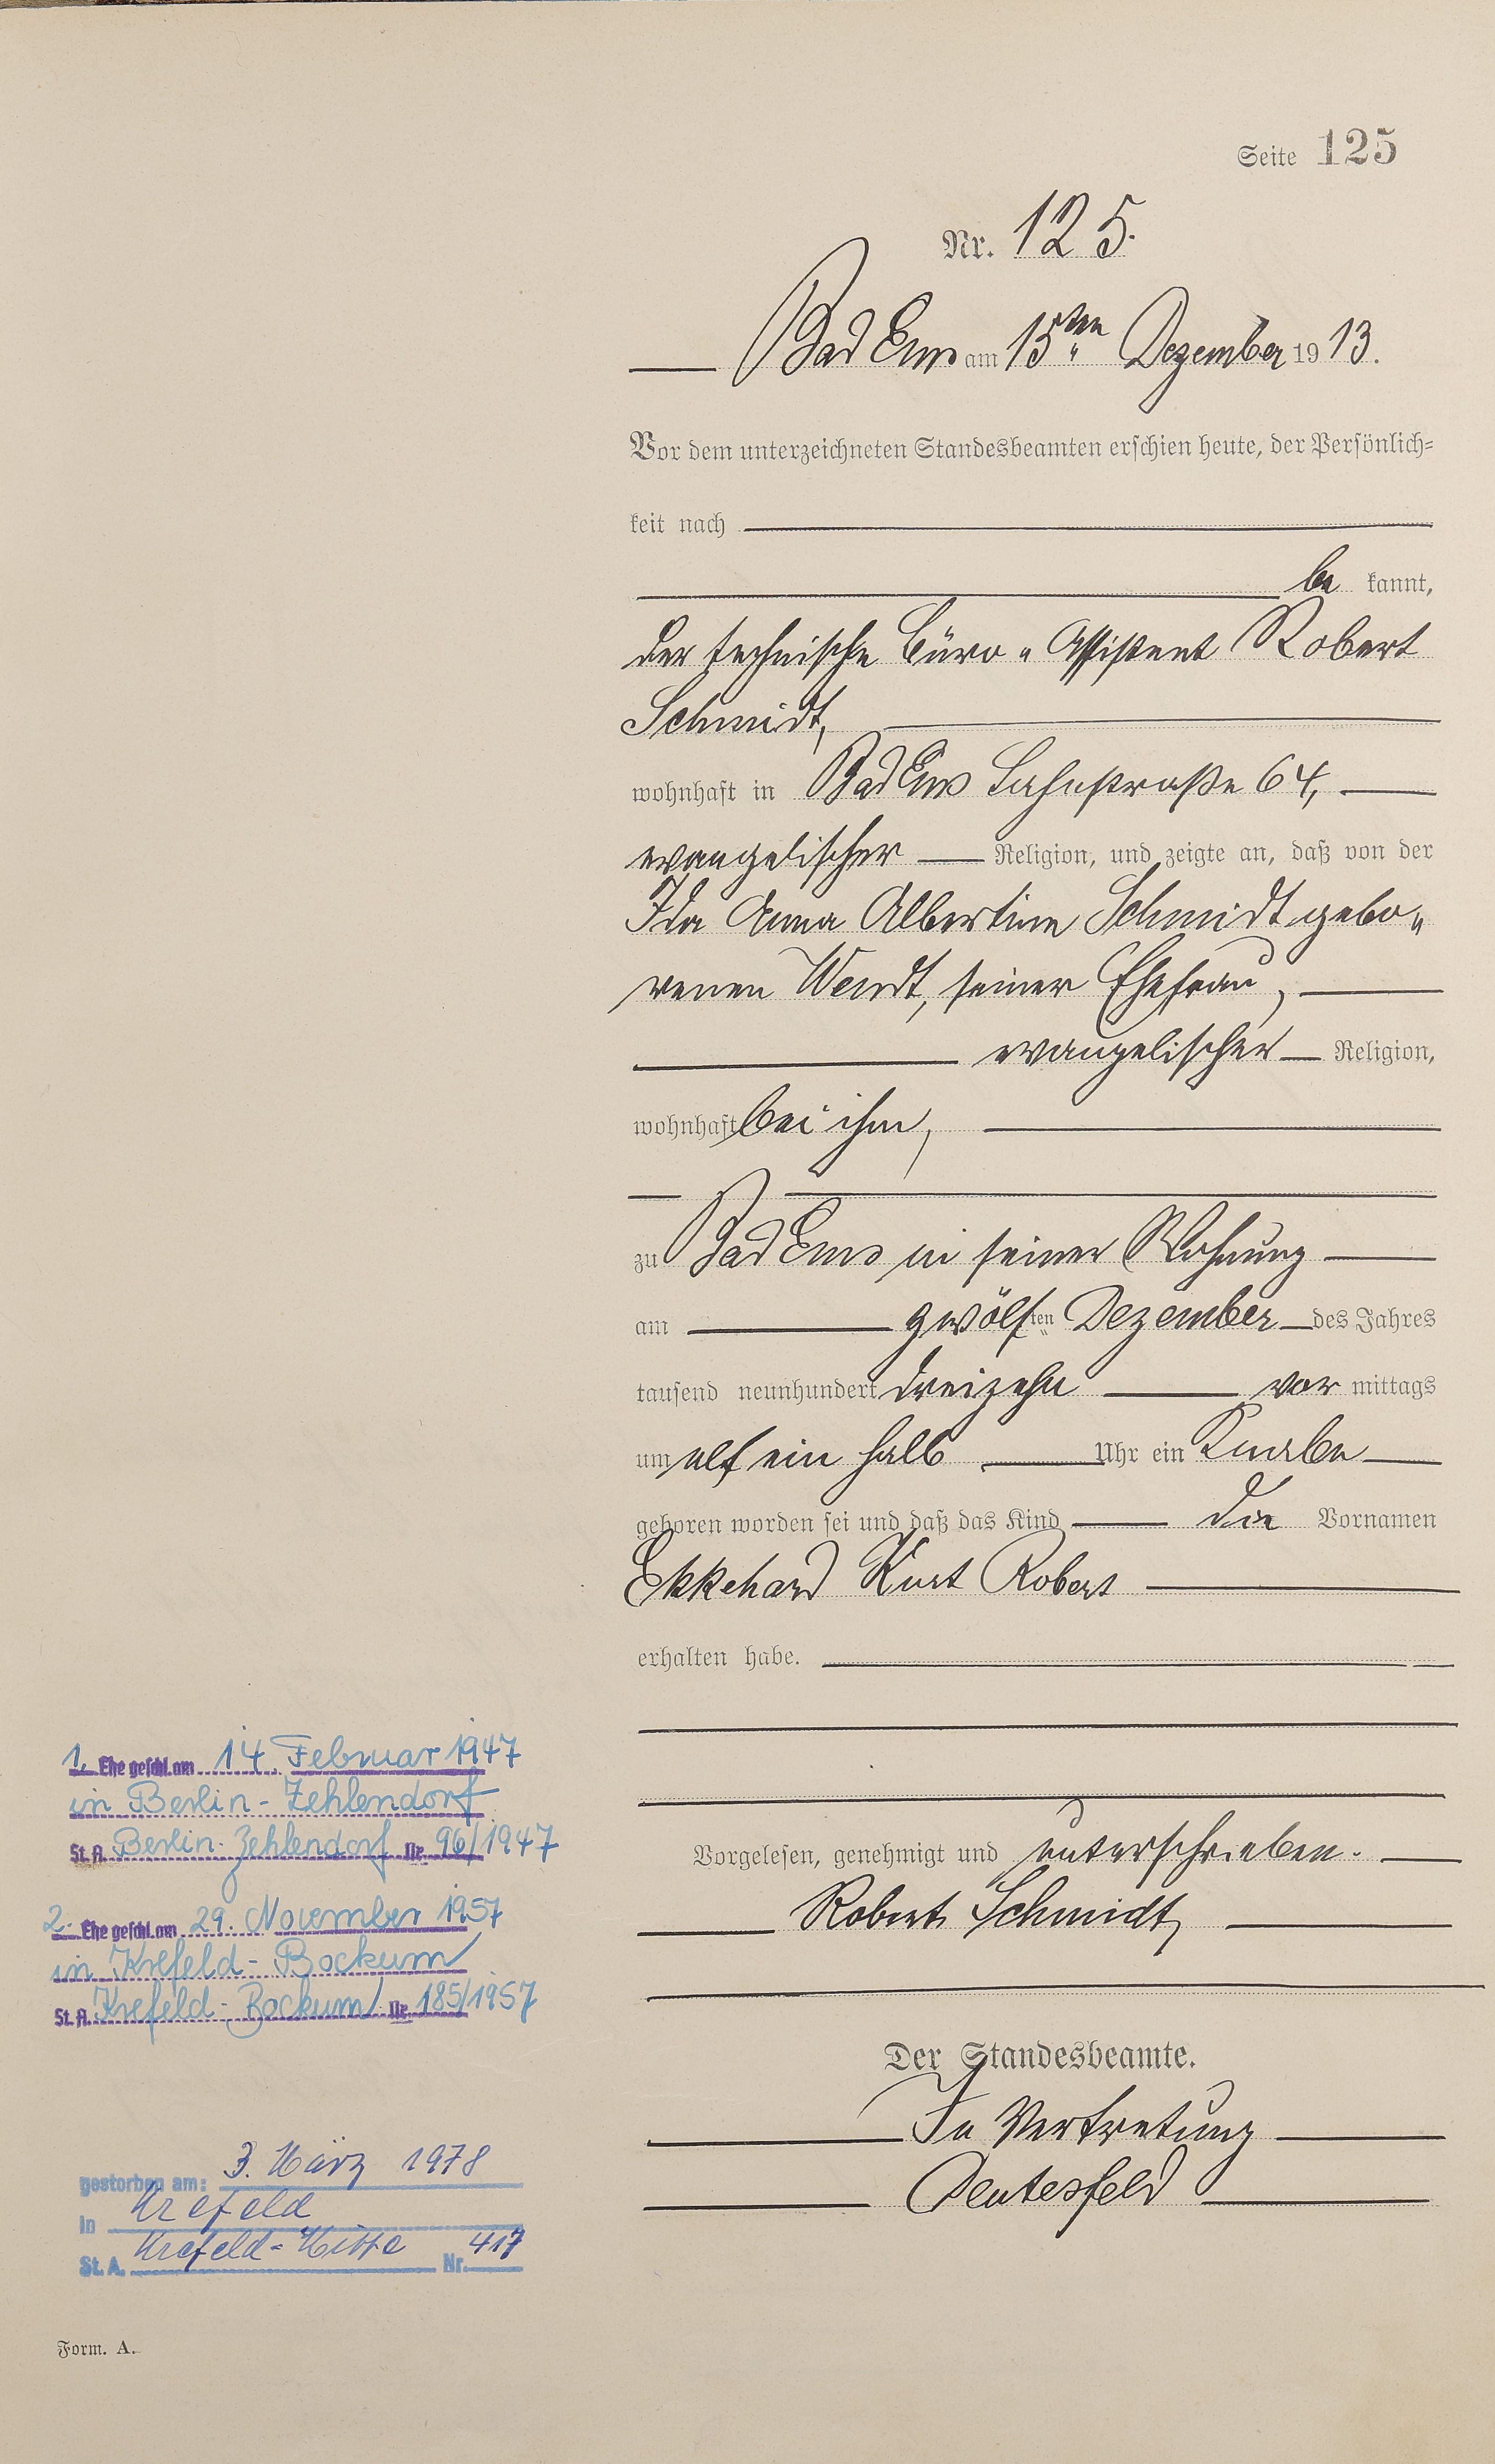 Seite 125
Nr. 125.
Bad Ems am 15ten Dezember 1913.
Vor dem unterzeichneten Standesbeamten erschien heute, der Persönlich-
keit nach
be kannt,
der technische Büro-Assistent Robert
Schmidt,
wohnhaft in Bad Ems Lahnstraße 64,
evangelischer Religion, und zeigte an, daß von der
Ida Anna Albertine Schmidt gebo-
renen Wendt, seiner Ehefrau,
evangelischer Religion,
wohnhaft bei ihm,
zu Bad Ems in seiner Wohnung
am zwölften Dezember des Jahres
tausend neunhundert dreizehn vor mittags
um elf ein halb Uhr ein Knabe
geboren worden sei und daß das Kind die Vornamen
Ekkehard Kurt Robert
erhalten habe.
Vorgelesen, genehmigt und unterschrieben.
Robert Schmidt,
Der Standesbeamte.
In Vertretung
Deutesfeld
1. Ehe geschl. am 14. Februar 1947
in Berlin-Zehlendorf
St. A. Berlin-Zehlendorf Nr. 96/1947
2. Ehe geschl. am 29. November 1957
in Krefeld-Bockum
St. A. Krefeld-Bockum Nr. 185/1957
gestorben am: 3. März 1978
in Krefeld
St. A. Krefeld-Mitte Nr. 417
Form. A.